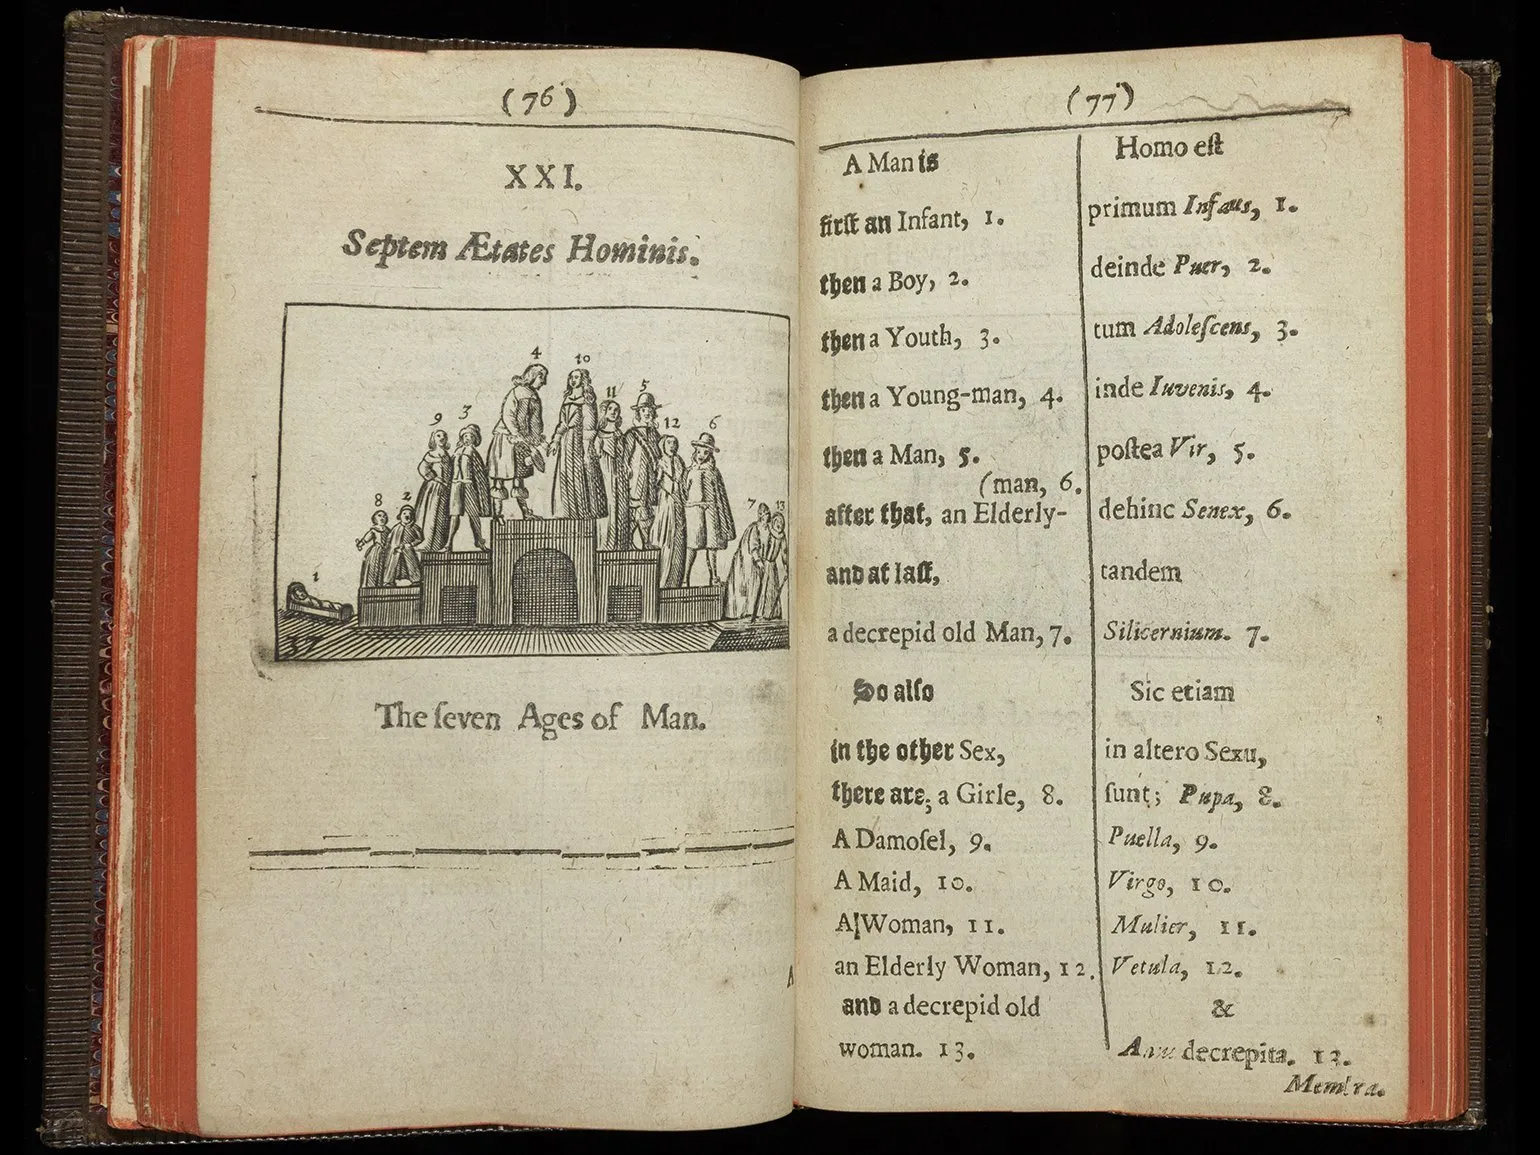 (76)
XXI.
Septem Ætates Hominis.
4
10
11
5
9
3
12
6
8
2
7
13
1
37
The ſeven Ages of Man.
A
(77)
A Man is
firſt an Infant, 1.
then a Boy, 2.
then a Youth, 3.
then a Young-man, 4.
then a Man, 5.
(man, 6.
after that, an Elderly-
and at laſt,
a decrepid old Man, 7.
So alſo
in the other Sex,
there are; a Girle, 8.
A Damoſel, 9.
A Maid, 10.
A Woman, 11.
an Elderly Woman, 12.
and a decrepid old
woman. 13.
Homo eſt
primum Infans, 1.
deinde Puer, 2.
tum Adoleſcens, 3.
inde Iuvenis, 4.
poſtea Vir, 5.
dehinc Senex, 6.
tandem
Silicernium. 7.
Sic etiam
in altero Sexu,
ſunt; Pupa, 8.
Puella, 9.
Virgo, 10.
Mulier, 11.
Vetula, 12.
&
decrepita. 13.
Membra.